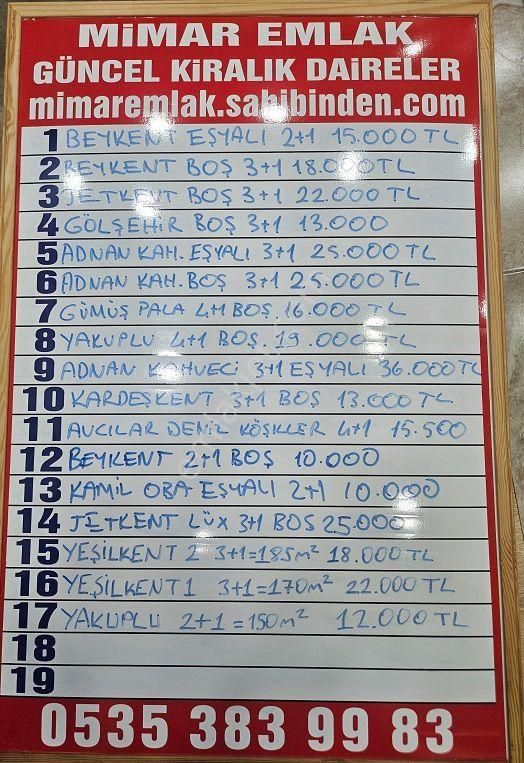 MİMAR EMLAK
GÜNCEL KİRALIK DAİRELER
mimaremlak.sahibinden.com
1 BEYKENT EŞYALI 2+1 15.000 TL
2 BEYKENT BOŞ 3+1 18.000 TL
3 JETKENT BOŞ 3+1 22.000 TL
4 GÖLŞEHİR BOŞ 3+1 13.000
5 ADNAN KAH. EŞYALI 3+1 25.000 TL
6 ADNAN KAH. BOŞ 3+1 25.000 TL
7 GÜMÜŞ PALA 4+1 BOŞ 16.000 TL
8 YAKUPLU 4+1 BOŞ. 19.000 TL
9 ADNAN KAHVECİ 3+1 EŞYALI 36.000 TL
10 KARDEŞKENT 3+1 BOŞ 13.000 TL
11 AVCILAR DENİZ KÖŞKLER 4+1 15.500
12 BEYKENT 2+1 BOŞ 10.000
13 KAMİL OBA EŞYALI 2+1 10.000
14 JETKENT LÜX 3+1 BOŞ 25.000
15 YEŞİLKENT 2 3+1=185m² 18.000 TL
16 YEŞİLKENT 1 3+1=170m² 22.000 TL
17 YAKUPLU 2+1=150m² 12.000 TL
18
19
0535 383 99 83